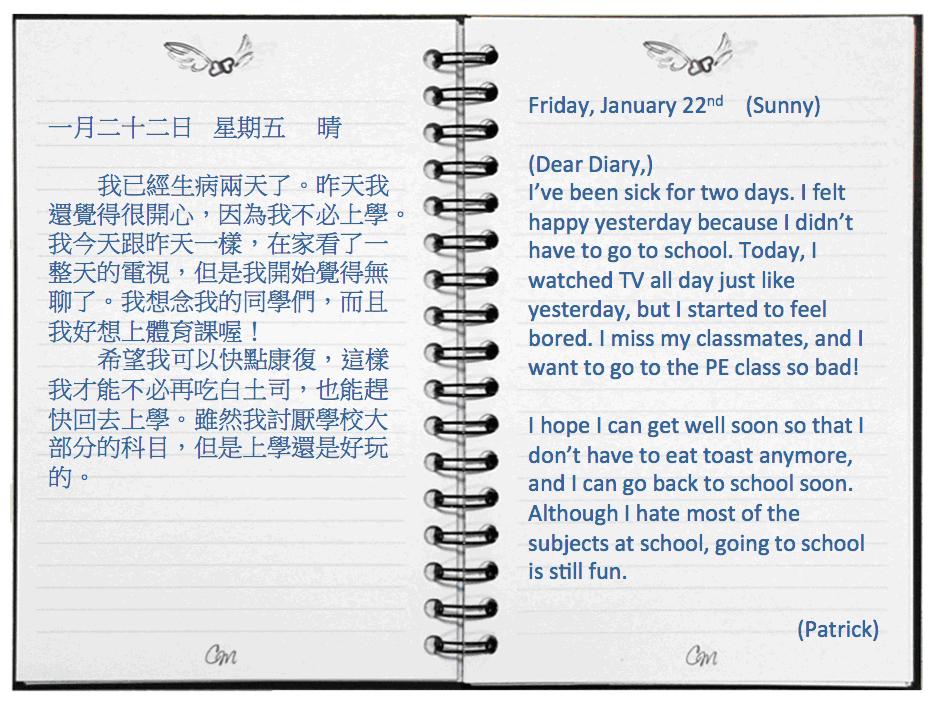 一月二十二日 星期五 晴
我已經生病兩天了。昨天我
還覺得很開心，因為我不必上學。
我今天跟昨天一樣，在家看了一
整天的電視，但是我開始覺得無
聊了。我想念我的同學們，而且
我好想上體育課喔！
希望我可以快點康復，這樣
我才能不必再吃白土司，也能趕
快回去上學。雖然我討厭學校大
部分的科目，但是上學還是好玩
的。
CM
Friday, January 22nd (Sunny)
(Dear Diary,)
I’ve been sick for two days. I felt
happy yesterday because I didn’t
have to go to school. Today, I
watched TV all day just like
yesterday, but I started to feel
bored. I miss my classmates, and I
want to go to the PE class so bad!
I hope I can get well soon so that I
don’t have to eat toast anymore,
and I can go back to school soon.
Although I hate most of the
subjects at school, going to school
is still fun.
(Patrick)
CM